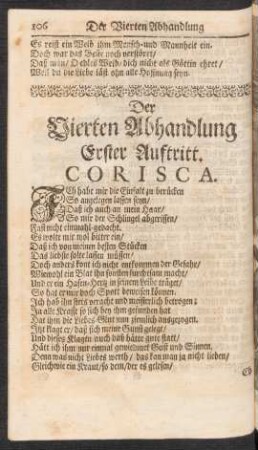 106 Der Vierten Abhandlung
Es reist ein Weib ihm Mensch-und Mannheit ein.
Doch war das Beste noch verstöret/
Daß mein/ Dehles Weib/ dich nicht als Göttin ehret/
Weil du die liebe läßt ohn alle Hoffnung seyn.
Der
Vierten Abhandlung
Erster Auftritt.
CORISCA.
Ich habe mir die Einfalt zu berücken
So angelegen lassen seyn/
Daß ich auch an mein Haar/
So mir der Schlüngel abgerissen/
Fast nicht einmahl gedacht.
Es wolte mir wol bitter ein/
Daß ich von meinen besten Stücken
Das liebste solte lassen müssen/
Doch anders kont ich nicht entkommen der Gefahr/
Wiewohl ein Blat ihn sonsten furchtsam macht/
Und er ein Hasen-Hertz in seinem leibe träget/
So hat er mir doch Spott beweisen können.
Ich hab ihn stets veracht und meisterlich betrogen;
Zu alle Krafft so sich bey ihm gefunden hat
Hat ihm die Liebes-Glut nun ziemlich ausgezogen.
Itzt klagt er/ daß sich meine Gunst gelegt/
Und dieses Klagen auch das hätte gute statt/
Hätt ich ihm nur einmal gewiedmet Geist und Sinnen.
Denn was nicht Liebes werth / das kan man ja nicht lieben/
Gleichwie ein Kraut/ so dem/ der es gelesen/